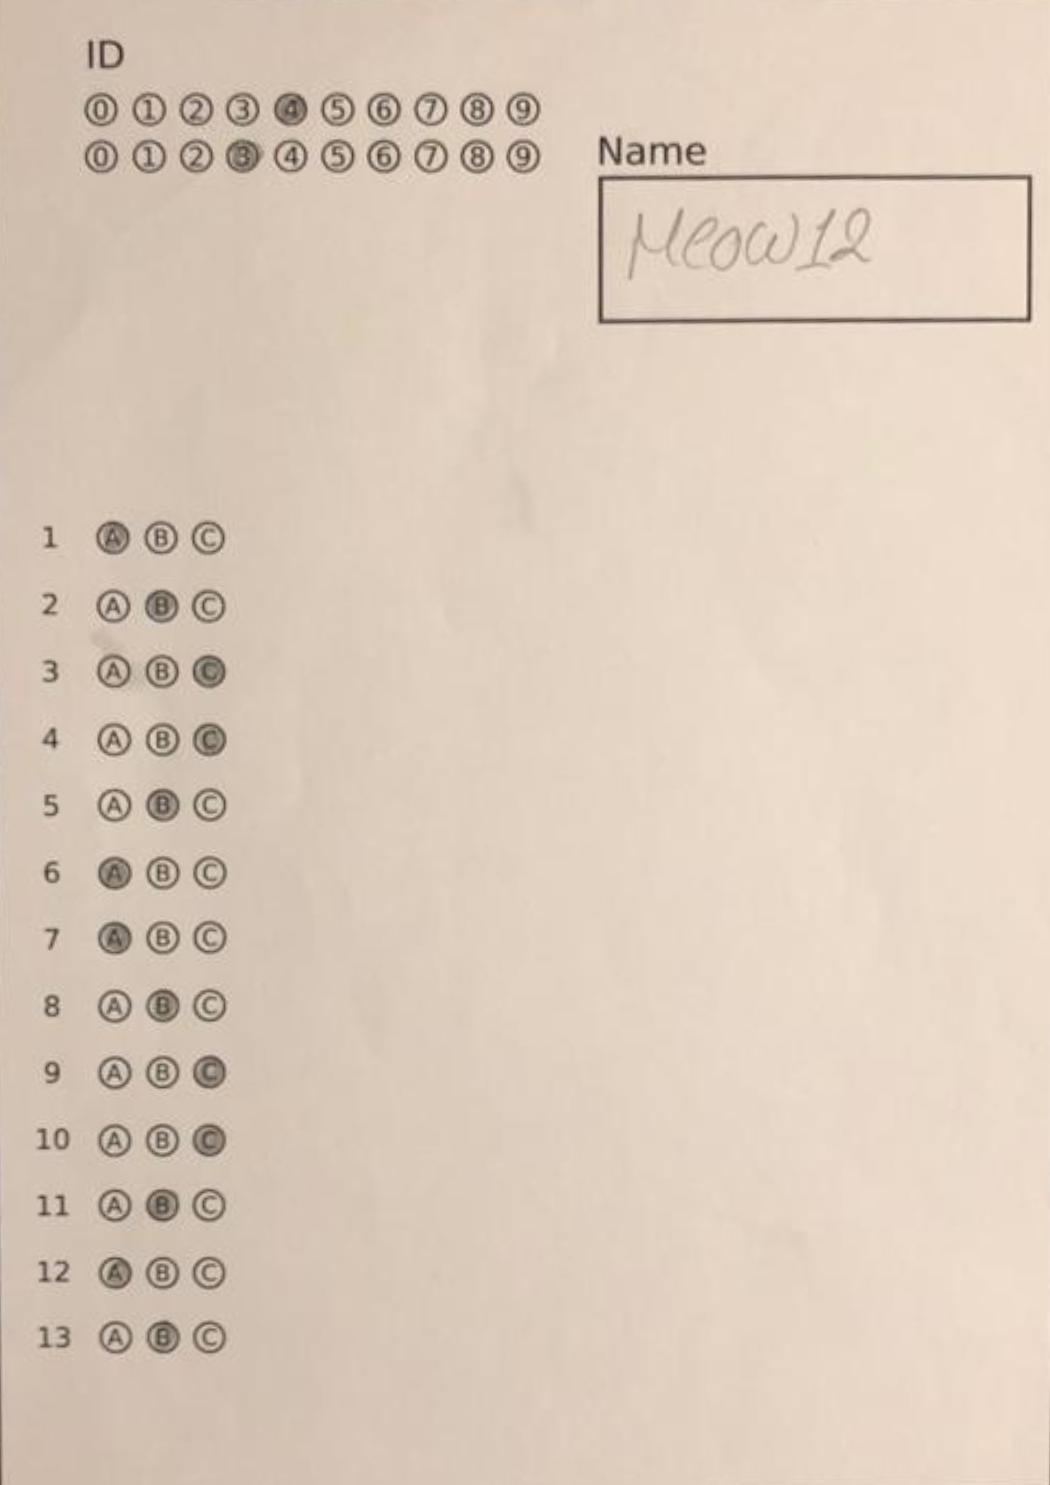 ID
0 1 2 3 4 5 6 7 8 9
0 1 2 3 4 5 6 7 8 9
Name
Meow12
1 A B C
2 A B C
3 A B C
4 A B C
5 A B C
6 A B C
7 A B C
8 A B C
9 A B C
10 A B C
11 A B C
12 A B C
13 A B C